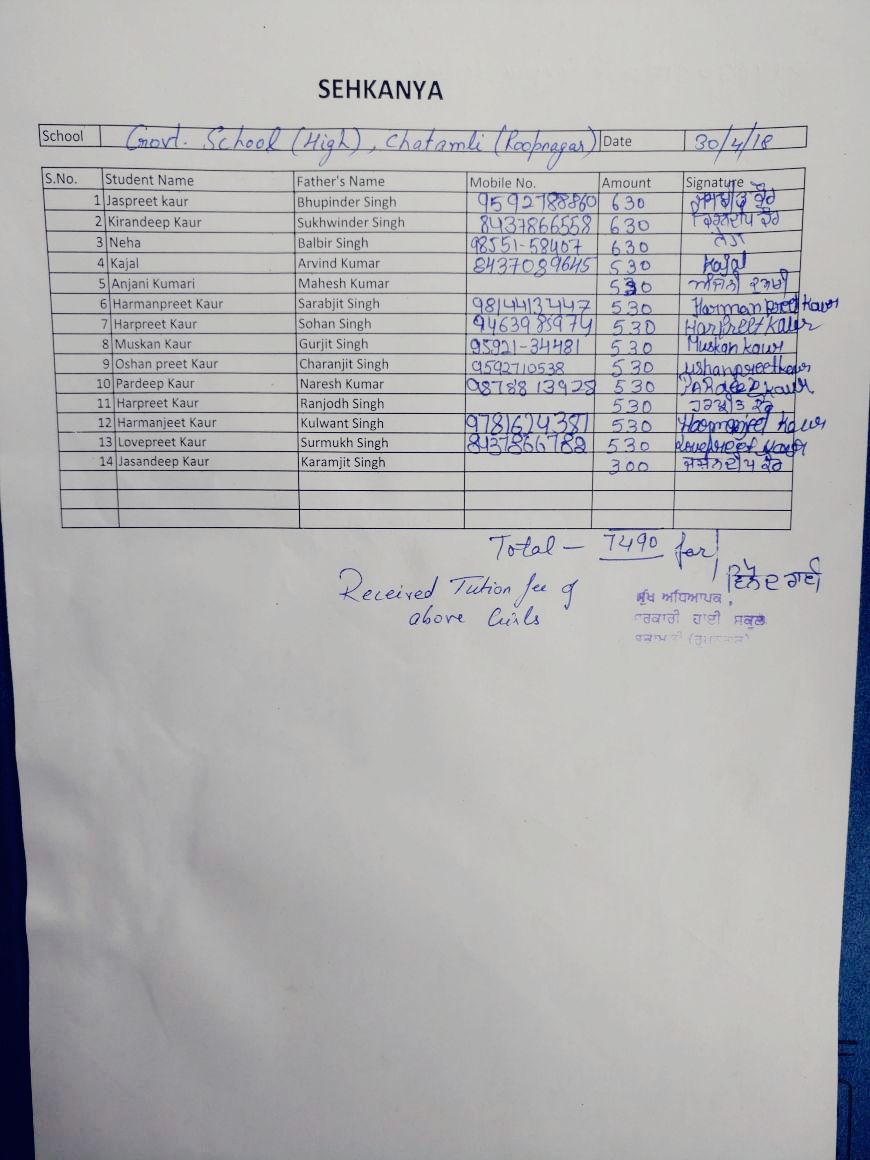 SEHKANYA
School Govt. School (High), Chatamli (Roopnagar) Date 30/4/18
S.No. Student Name Father's Name Mobile No. Amount Signature
1 Jaspreet kaur Bhupinder Singh 9592788860 630 ਜਸਪ੍ਰੀਤ ਕੌਰ
2 Kirandeep Kaur Sukhwinder Singh 8437866558 630 ਕਿਰਨਦੀਪ ਕੌਰ
3 Neha Balbir Singh 98551-58407 630 ਨੇਹਾ
4 Kajal Arvind Kumar 8437089645 530 Kajal
5 Anjani Kumari Mahesh Kumar 530 ਅੰਜਨੀ ਕੁਮਾਰੀ
6 Harmanpreet Kaur Sarabjit Singh 9814413447 530 Harmanpreet kaur
7 Harpreet Kaur Sohan Singh 9463985974 530 Harpreet kaur
8 Muskan Kaur Gurjit Singh 95921-34481 530 Muskan kaur
9 Oshan preet Kaur Charanjit Singh 9592710538 530 ushanpreetkaur
10 Pardeep Kaur Naresh Kumar 98788 13928 530 PARdeep kaur
11 Harpreet Kaur Ranjodh Singh 530 ਹਰਪ੍ਰੀਤ ਕੌਰ
12 Harmanjeet Kaur Kulwant Singh 9781624381 530 Harmanjeet kaur
13 Lovepreet Kaur Surmukh Singh 8437866782 530 Lovepreet kaur
14 Jasandeep Kaur Karamjit Singh 300 ਜਸ਼ਨਦੀਪ ਕੌਰ
Total – 7490 for
Received Tution fee of ਵਿਨੋਦ ਰਾਣੀ
above Girls
ਮੁੱਖ ਅਧਿਆਪਕ,
ਸਰਕਾਰੀ ਹਾਈ ਸਕੂਲ